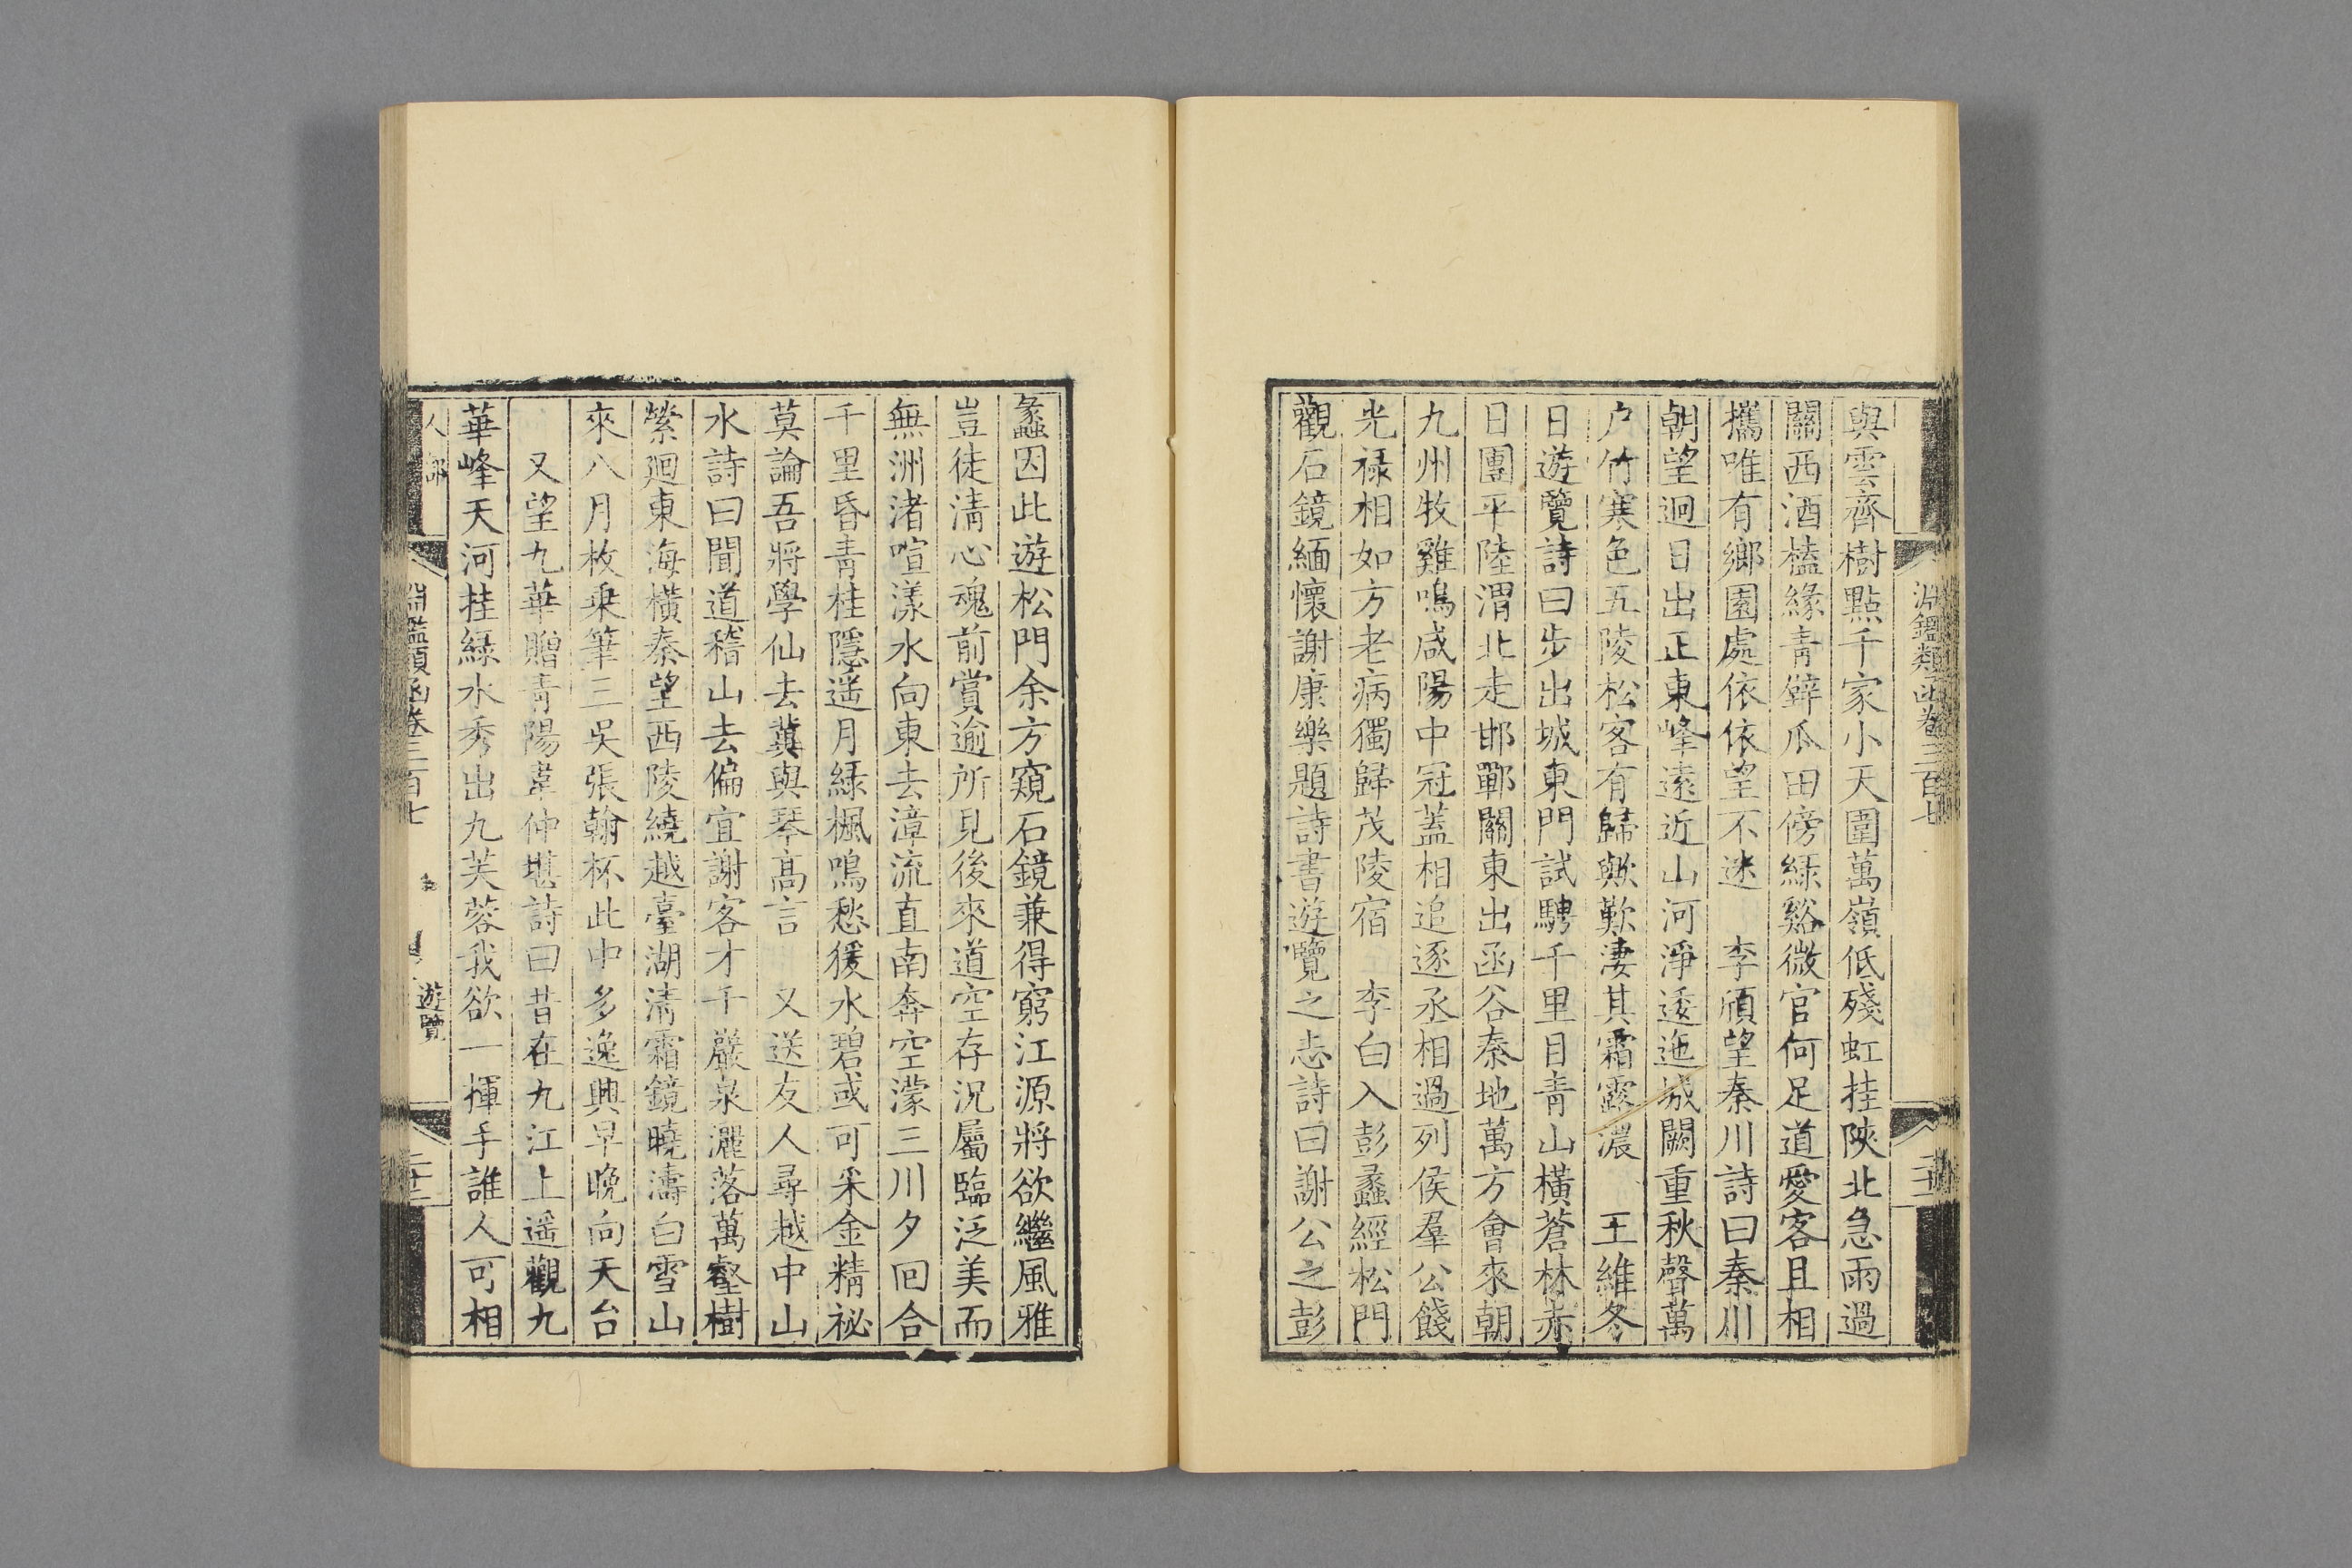 淵鑑類函卷三百七
與雲齊樹點千家小天圍萬嶺低殘虹挂陝北急雨過
關西酒榼緣青壁瓜田傍綠谿微官何足道愛客且相
攜唯有鄉園處依依望不迷　李頎望秦川詩曰秦川
朝望迥日出正東峰遠近山河淨逶迤城闕重秋聲萬
户竹寒色五陵松客有歸歟歎淒其霜露濃　王維冬
日遊覽詩曰步出城東門試騁千里目青山橫蒼林赤
日團平陸渭北走邯鄲關東出函谷秦地萬方會來朝
九州牧雞鳴咸陽中冠蓋相追逐丞相過列侯羣公餞
光祿相如方老病獨歸茂陵宿　李白入彭蠡經松門
觀石鏡緬懷謝康樂題詩書遊覽之志詩曰謝公之彭
蠡因此遊松門余方窺石鏡兼得窮江源將欲繼風雅
豈徒淸心魂前賞逾所見後來道空存況屬臨泛美而
無洲渚喧漾水向東去漳流直南奔空濛三川夕回合
千里昏青桂隱遥月綠楓鳴愁猨水碧或可采金精祕
莫論吾將學仙去冀與琴高言　又送友人尋越中山
水詩曰聞道稽山去偏宜謝客才千巖泉灑落萬壑樹
縈迴東海橫秦望西陵繞越臺湖淸霜鏡曉濤白雪山
來八月枚乘筆三吳張翰杯此中多逸興早晚向天台
又望九華贈青陽韋仲堪詩曰昔在九江上遥觀九
華峰天河挂綠水秀出九芙蓉我欲一揮手誰人可相
人部
淵鑑類函卷三百七
遊覽